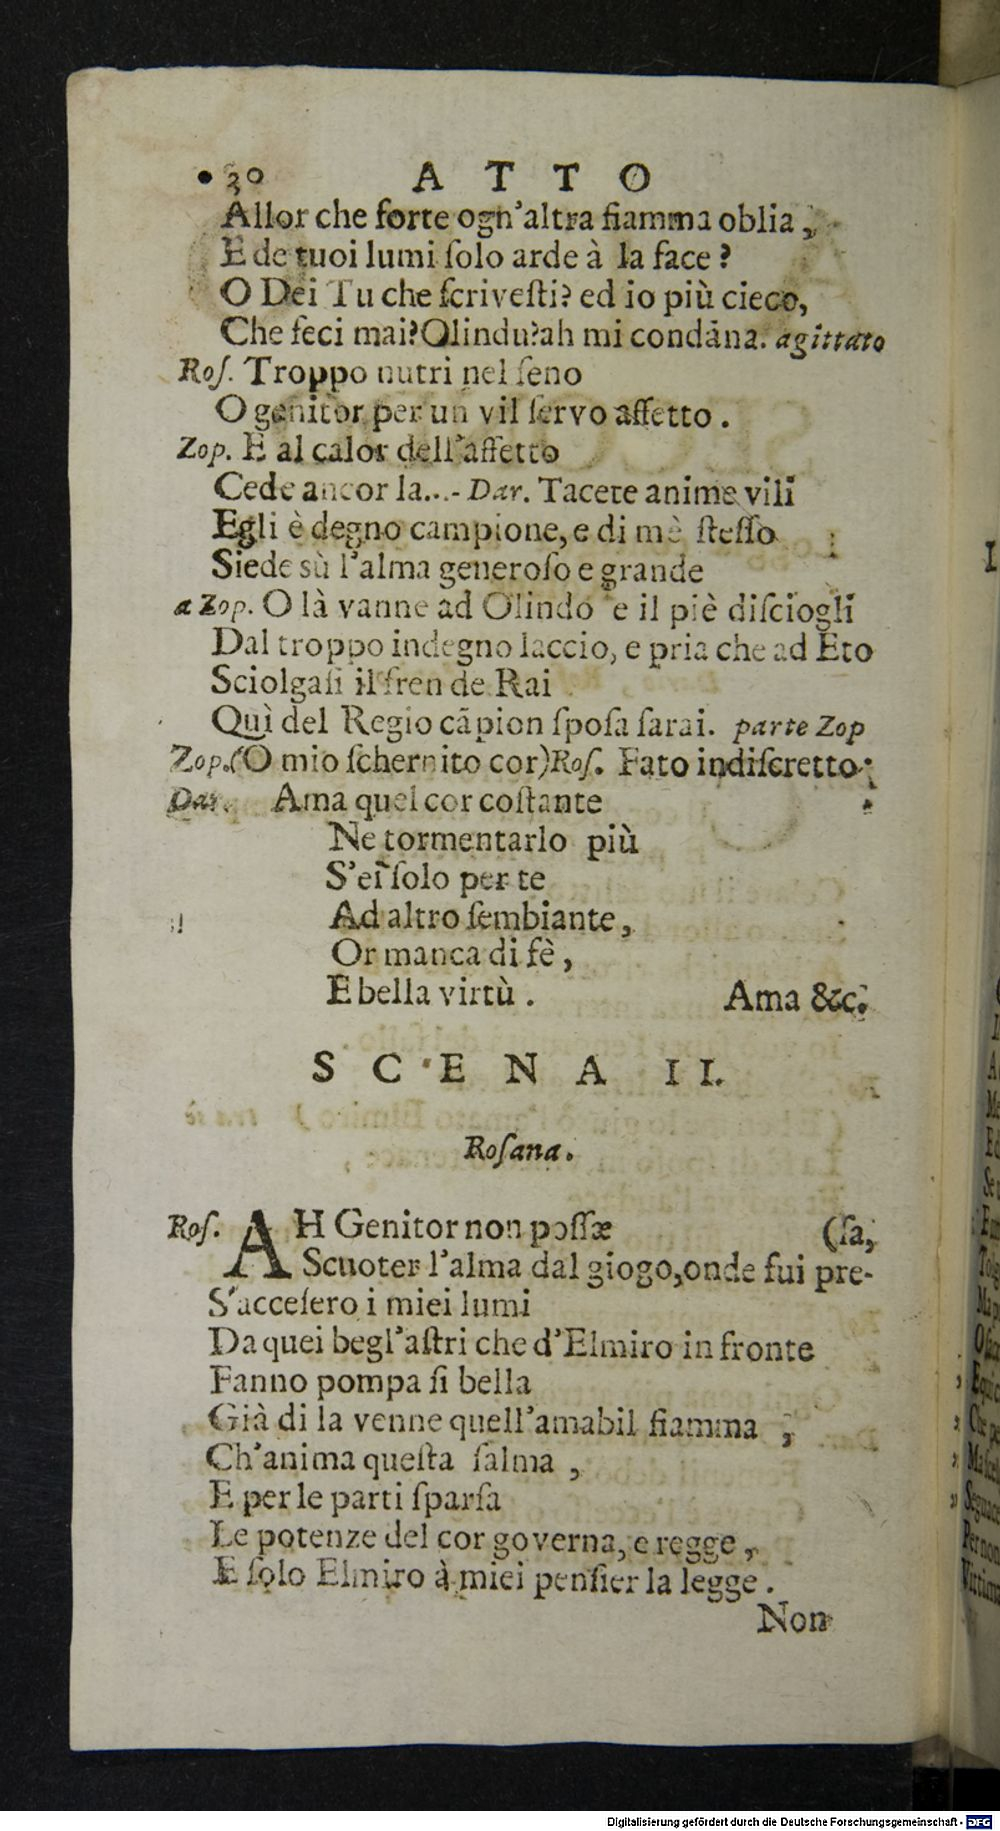 30 ATTO
Allor che forte ogn'altra fiamma oblia,
E de tuoi lumi ſolo arde à la face?
O Dei Tu che ſcriveſti? ed io più cieco,
Che feci mai? Olindu? ah mi condãna. agittato
Roſ. Troppo nutri nel ſeno
O genitor per un vil ſervo affetto.
Zop. E al calor dell'affetto
Cede ancor la...- Dar. Tacete anime vili
Egli è degno campione, e di mè ſteſſo
Siede sù l'alma generoſo e grande
a Zop. O là vanne ad Olindo e il piè diſciogli
Dal troppo indegno laccio, e pria che ad Eto
Sciolgaſi il fren de Rai
Quì del Regio cãpion ſpoſa ſarai. parte Zop
Zop. (O mio ſchernito cor) Roſ. Fato indiſcretto.
Dar. Ama quel cor coſtante
Ne tormentarlo più
S'ei ſolo per te
Ad altro ſembiante,
Or manca di fè,
E bella virtù. Ama &c.
SCENA II.
Roſana.
Roſ. AH Genitor non poſſæ (ſa,
Scuoter l'alma dal giogo, onde fui pre-
S'acceſero i miei lumi
Da quei begl'aſtri che d'Elmiro in fronte
Fanno pompa ſi bella
Già di la venne quell'amabil fiamma,
Ch'anima queſta ſalma,
E per le parti ſparſa
Le potenze del cor governa, e regge,
E ſolo Elmiro à miei penſier la legge.
Non
Digitalisierung gefördert durch die Deutsche Forschungsgemeinschaft - DFG